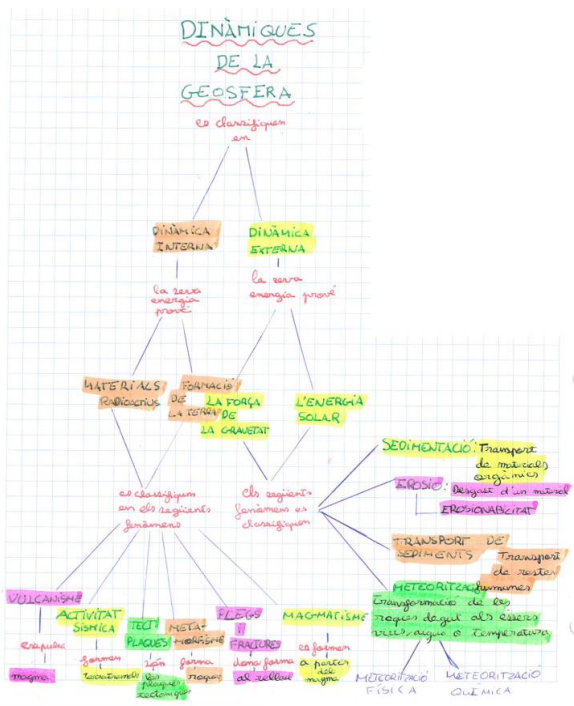 DINÀMIQUES
DE LA
GEOSFERA
es classifiquen
en
DINÀMICA
INTERNA
DINÀMICA
EXTERNA
la seva
energia
prové
la seva
energia prové
MATERIALS
RADIOACTIUS
FORMACIÓ
DE
LA TERRA
LA FORÇA
DE
LA GRAVETAT
L'ENERGIA
SOLAR
es classifiquen
en els següents
fenòmens
Els següents
fenòmens es
classifiquen
SEDIMENTACIÓ: Transport
de materials
orgànics
EROSIÓ: Desgast d'un material
EROSIONABILITAT
TRANSPORT DE
SEDIMENTS
Transport
de restes
humanes
METEORITZACIÓ
transformació de les
roques degut als éssers
vius, aigua o temperatura
METEORITZACIÓ
FÍSICA
METEORITZACIÓ
QUÍMICA
VULCANISME
expulsa
magma
ACTIVITAT
SÍSMICA
formen
terratrèmols
TECT
PLAQUES
són
les
plaques
tectòniques
META-
MORFISME
forma
roques
PLECS
I
FRACTURES
dona forma
al relleu
MAGMATISME
es formen
a partir
del
magma